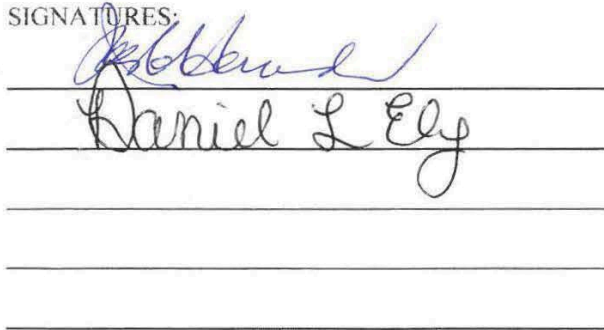 SIGNATURES:
Daniel L Ely